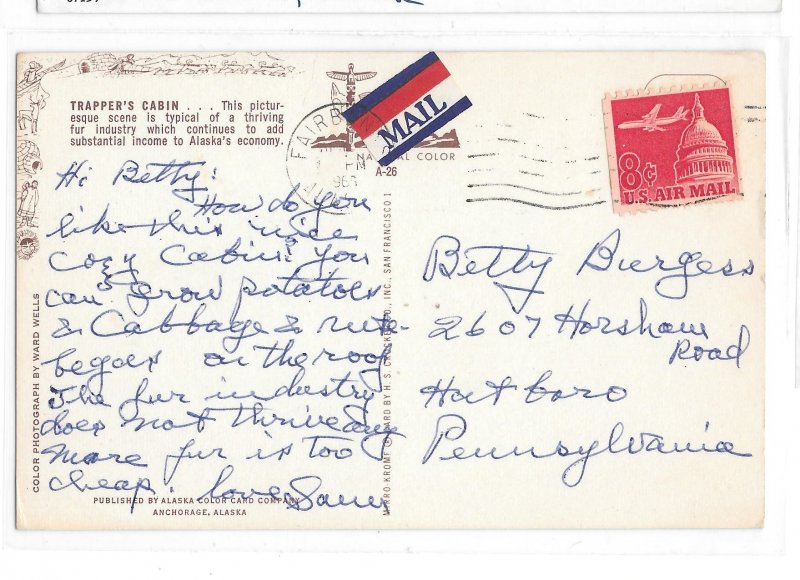 TRAPPER'S CABIN . . . This pictur-
esque scene is typical of a thriving
fur industry which continues to add
substantial income to Alaska's economy.
Hi Betty:
How do you
like this nice
cozy Cabin? You
can grow potatoes
& Cabbage & rute-
begaes on the roof
The fur industry
does not thrive any
more fur is too
cheap. love Sam
PUBLISHED BY ALASKA COLOR CARD COMPANY
ANCHORAGE, ALASKA
COLOR PHOTOGRAPH BY WARD WELLS
MAIL
FAIRB
196
NATURAL COLOR
A-26
MIRRO-KROME CARD BY H. S. CROCKER CO., INC., SAN FRANCISCO 1
8¢
U.S. AIR MAIL
Betty Burgess
2607 Horsham
Road
Hatboro
Pennsylvania